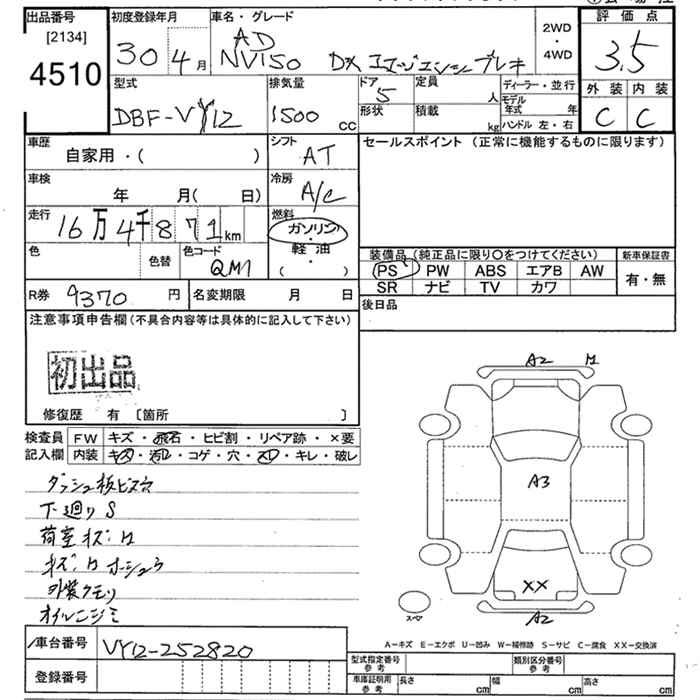 出品番号 [2134] 4510
初度登録年月 30 4月
車名・グレード AD NV150 DX エマージェンシーブレーキ
2WD・4WD
評価点 3.5
外装 内装
C C
型式 DBF-VY12
排気量 1500 cc
ドア 5
形状
定員 人
積載 kg
ディーラー・並行
モデル年式 年
ハンドル 左・右
車歴 自家用・( )
シフト AT
セールスポイント (正常に機能するものに限ります)
車検 年 月( 日)
冷房 A/C
走行 16万4千871km
燃料 ガソリン・軽油・( )
色 色替 色コード QM1
装備品(純正品に限り〇をつけてください)
PS PW ABS エアB AW
SR ナビ TV カワ
新車保証書 有・無
R券 9370円
名変期限 月 日
後日品
注意事項申告欄(不具合内容等は具体的に記入して下さい)
初出品
修復歴 有〔箇所 〕
検査員記入欄
FW キズ・飛石・ヒビ割・リペア跡・×要
内装 キズ・汚れ・コゲ・穴・スレ・キレ・破レ
ダッシュ板ビス穴
下廻りS
荷室キズ凹
外装クモリ
オイルニジミ
A2
A3
XX
A2
スペア
A-キズ E-エクボ U-凹み W-補修跡 S-サビ C-腐食 XX-交換済
車台番号 VY12-252820
登録番号
型式指定番号 参考
類別区分番号 参考
車庫証明用 参考 長さ cm 幅 cm 高さ cm